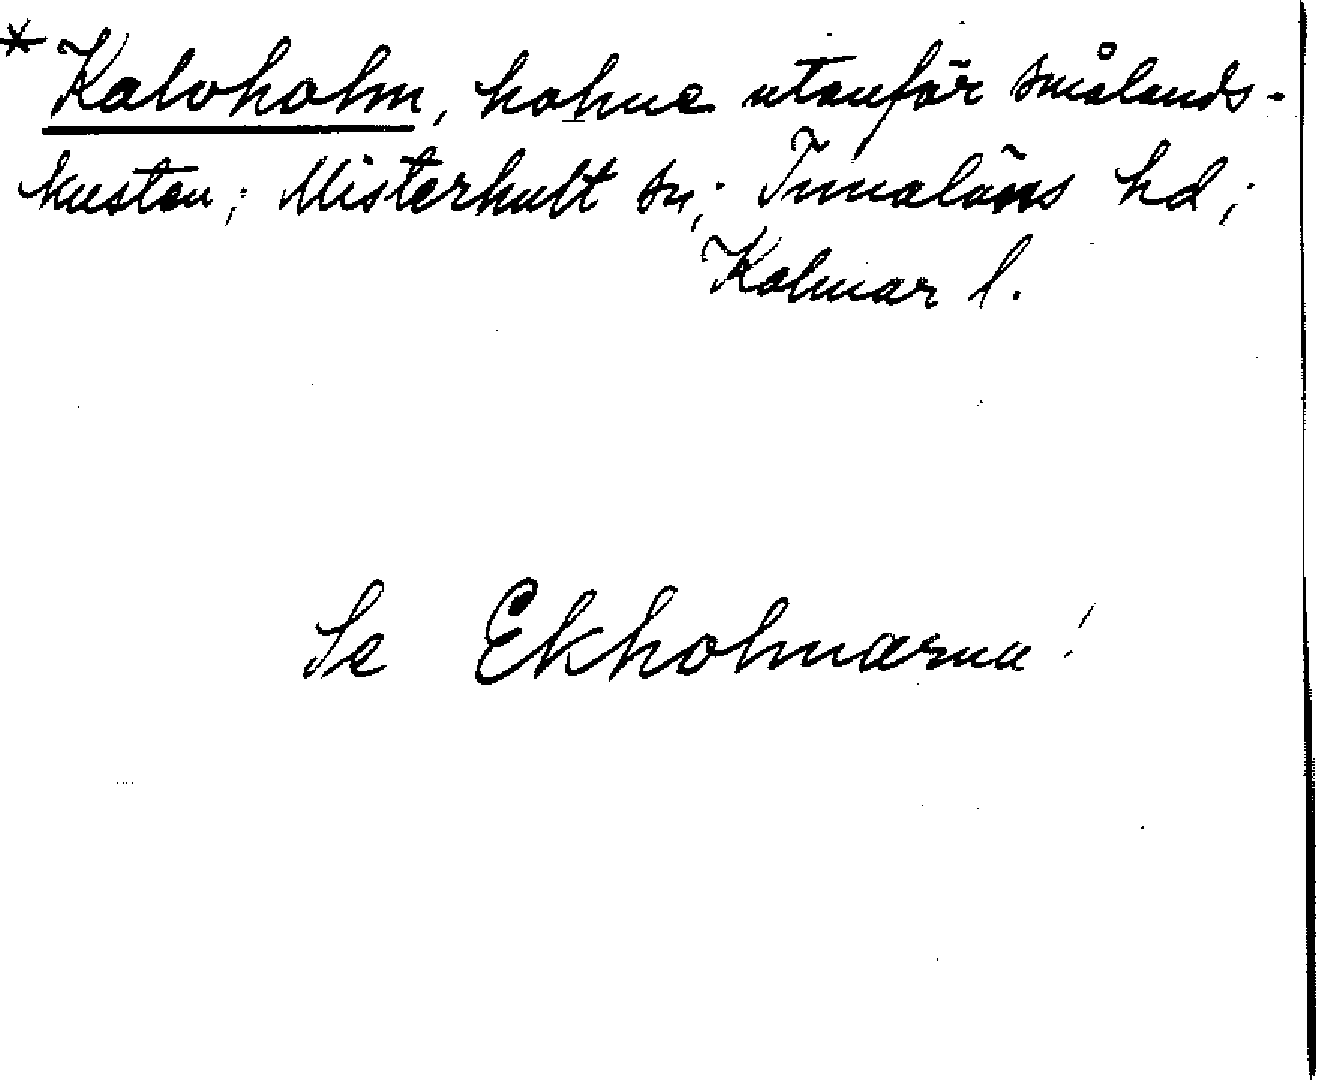 * Kalvholm, holme utanför smålands-
kusten; Misterhult sn; Tunaläns hd;
Kalmar l.
Se Ekholmarna!